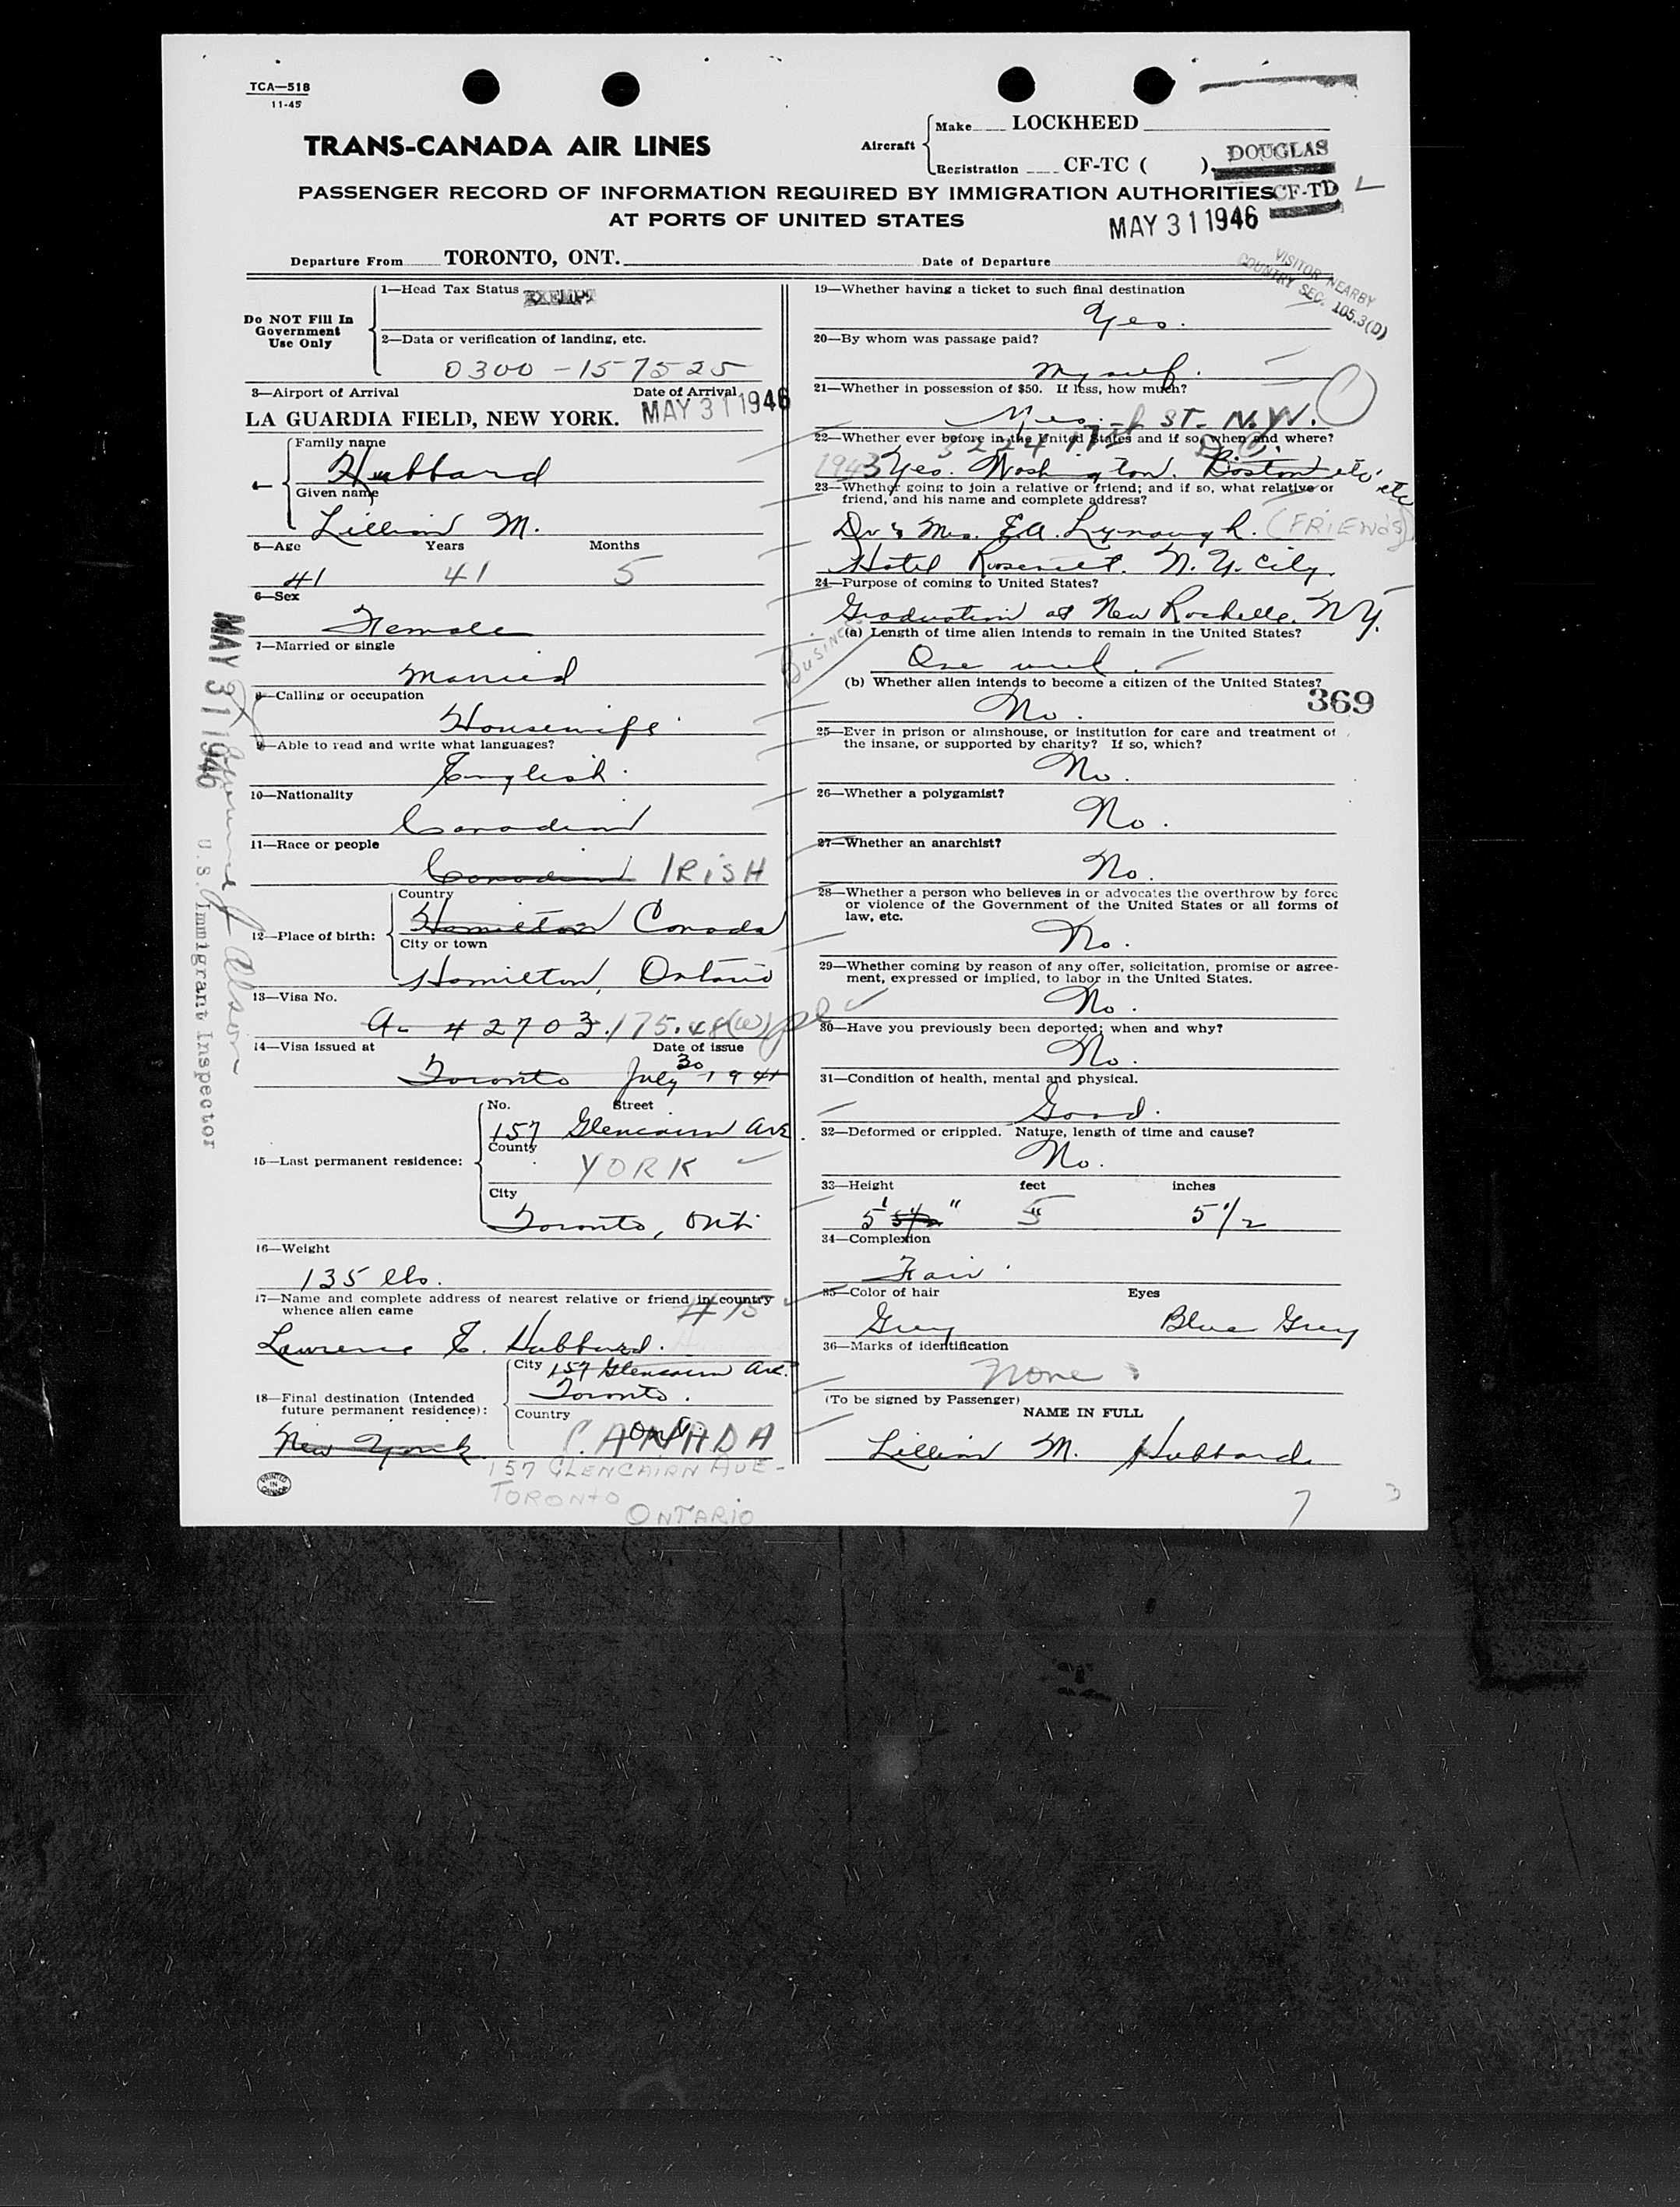 TCA—518
11-45
TRANS-CANADA AIR LINES
Aircraft
Make LOCKHEED
Registration CF-TC ( ).
DOUGLAS
CF-TD
PASSENGER RECORD OF INFORMATION REQUIRED BY IMMIGRATION AUTHORITIES
AT PORTS OF UNITED STATES
MAY 31 1946
Departure From TORONTO, ONT.
Date of Departure
VISITOR NEARBY
COUNTRY SEC. 105.3(D)
Do NOT Fill In
Government
Use Only
1—Head Tax Status EXEMPT
2—Data or verification of landing, etc.
0300 - 157525
3—Airport of Arrival Date of Arrival
LA GUARDIA FIELD, NEW YORK. MAY 31 1946
4—
Family name
Hubbard
Given name
Lillian M.
5—Age Years Months
41 41 5
6—Sex
Female
7—Married or single
Married
8—Calling or occupation
Housewife
9—Able to read and write what languages?
English.
10—Nationality
Canadian
11—Race or people
Canadian IRISH
12—Place of birth:
Country
Hamilton Canada
City or town
Hamilton, Ontario
13—Visa No.
A- # 2703. 175.48(W)
14—Visa issued at Date of issue
Toronto July 30 1941
15—Last permanent residence:
No. Street
157 Glencairn Ave.
County
YORK
City
Toronto, Ont.
16—Weight
135 lbs.
17—Name and complete address of nearest relative or friend in country
whence alien came
Lawrence E. Hubbard.
18—Final destination (Intended
future permanent residence):
New York
City 157 Glencairn Ave.
Toronto.
Country
Ont.
CANADA
157 GLENCAIRN AVE-
TORONTO
ONTARIO
PRINTED
IN
CANADA
MAY 31 1946
U.S. Immigrant Inspector
19—Whether having a ticket to such final destination
Yes.
20—By whom was passage paid?
Myself.
21—Whether in possession of $50. If less, how much?
Yes. ST. N.W.
22—Whether ever before in the United States and if so, when and where?
1943 Yes. Washington, Boston etc etc
23—Whether going to join a relative or friend; and if so, what relative or
friend, and his name and complete address?
Dr & Mrs. E.A. Lynaugh. (FRIENDS)
Hotel Roosevelt. N.Y. City.
24—Purpose of coming to United States?
Graduation at New Rochelle. N.Y.
BUSINESS
(a) Length of time alien intends to remain in the United States?
One week.
(b) Whether alien intends to become a citizen of the United States?
No.
369
25—Ever in prison or almshouse, or institution for care and treatment of
the insane, or supported by charity? If so, which?
No.
26—Whether a polygamist?
No.
27—Whether an anarchist?
No.
28—Whether a person who believes in or advocates the overthrow by force
or violence of the Government of the United States or all forms of
law, etc.
No.
29—Whether coming by reason of any offer, solicitation, promise or agree-
ment, expressed or implied, to labor in the United States.
No.
30—Have you previously been deported; when and why?
No.
31—Condition of health, mental and physical.
Good.
32—Deformed or crippled. Nature, length of time and cause?
No.
33—Height feet inches
5' 5½" 5 5½
34—Complexion
Fair.
35—Color of hair Eyes
Grey Blue Grey
36—Marks of identification
None
(To be signed by Passenger)
NAME IN FULL
Lillian M. Hubbard.
7